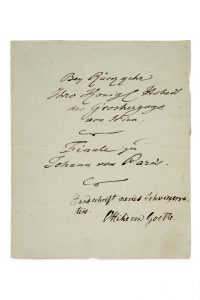 Bey Rückkehr
Ihro Königl. Hoheit
des Grosherzogs
von Wien.
Finale zu
Johann von Paris.
Handschrift meines Schwiegerva-
ters
Ottilie von Goethe